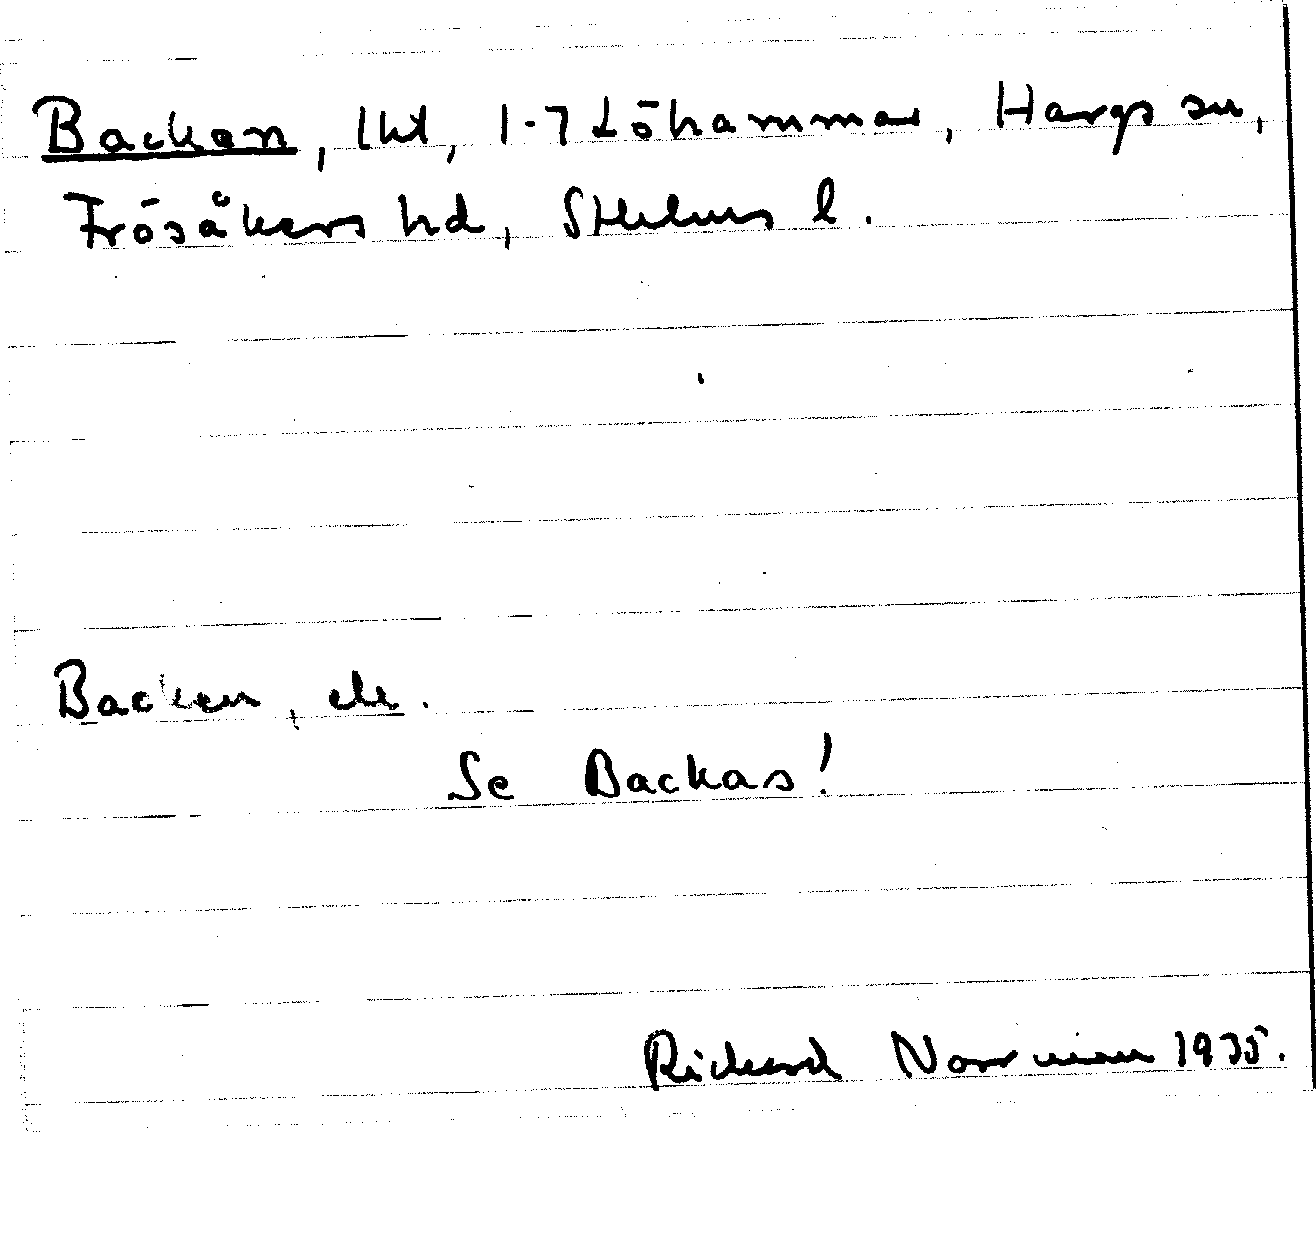 Backen, lht, 1-7 Löhammar, Hargs sn,
Frösåkers hd, Sthlms l.
Backen, ek.
Se Backas!
Rickard Norrman 1935.